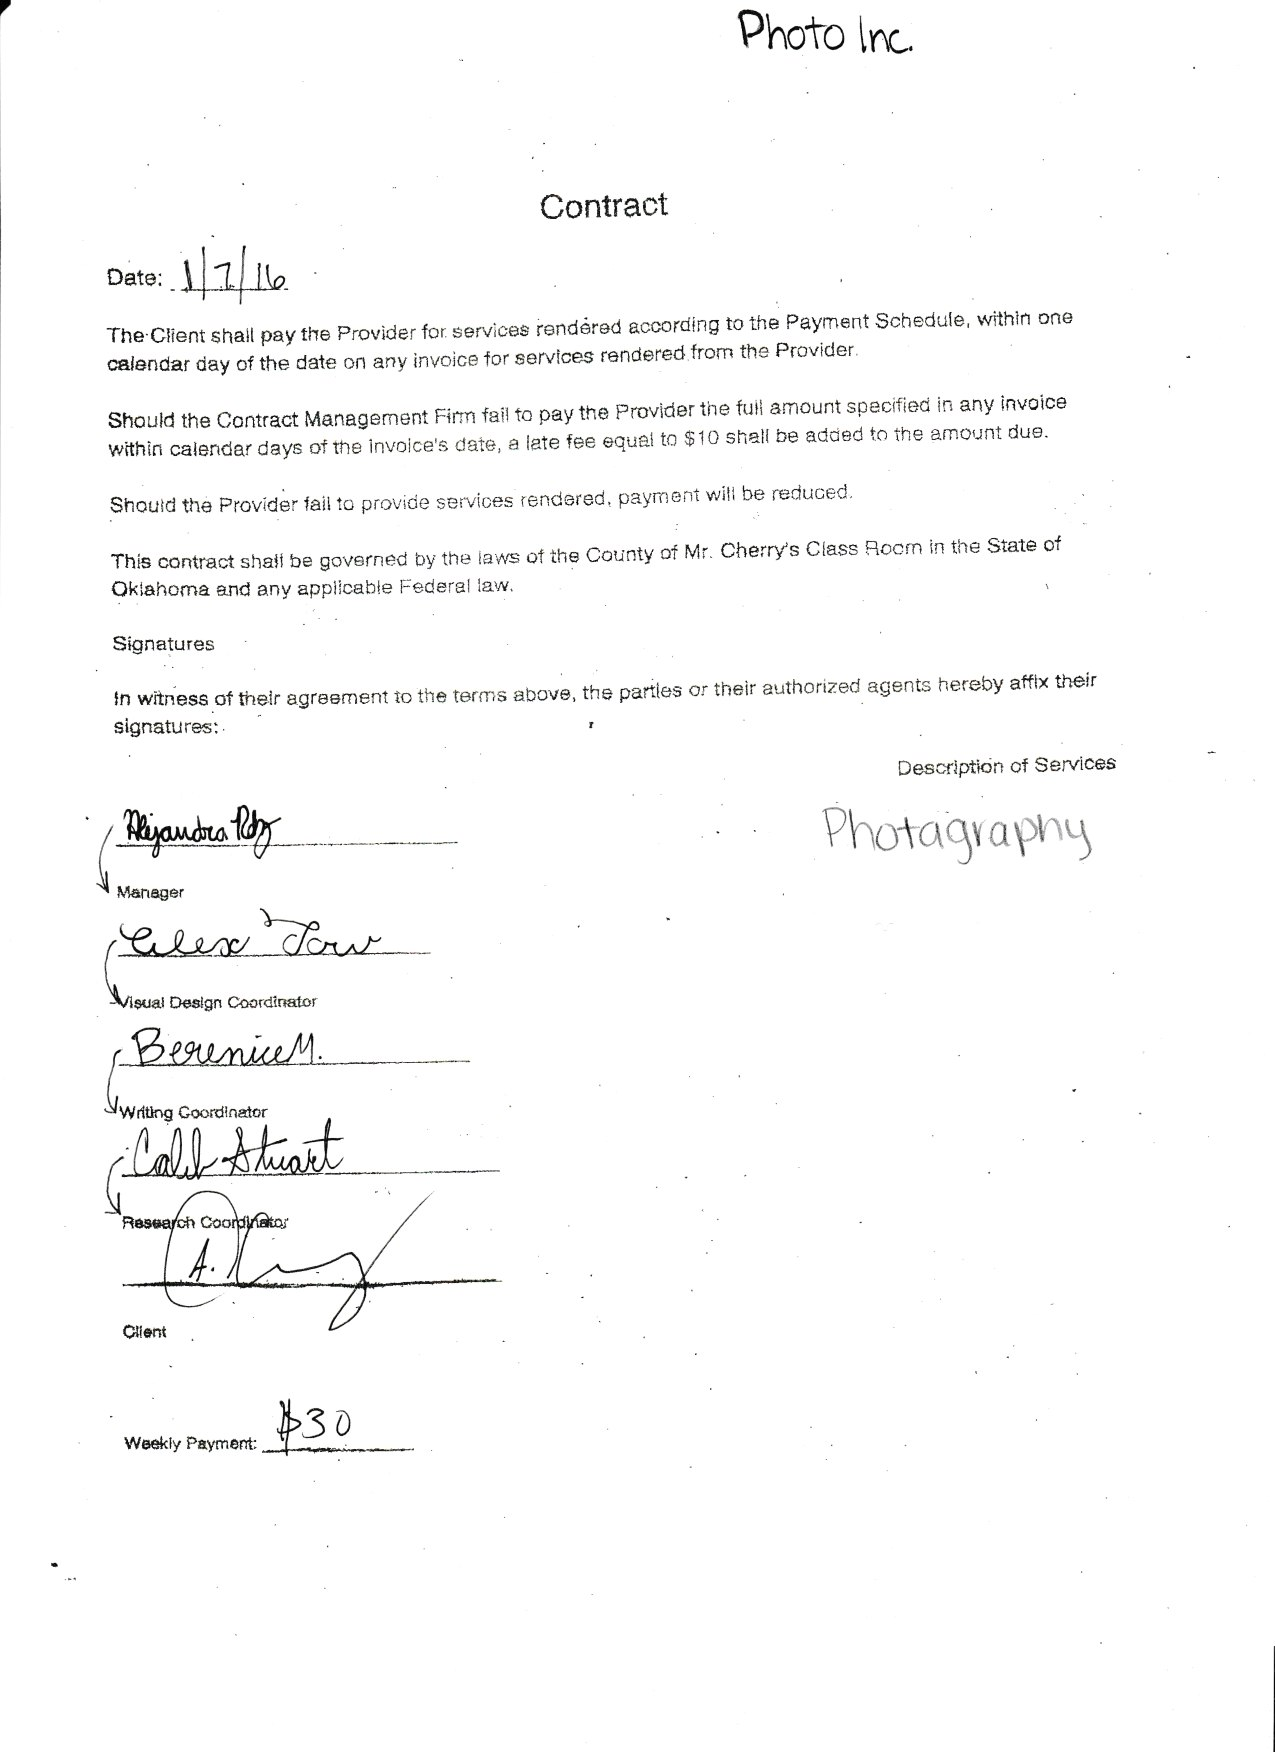 Photo Inc.
Contract
Date: 1/7/16
The Client shall pay the Provider for services rendered according to the Payment Schedule, within one
calendar day of the date on any invoice for services rendered from the Provider.
Should the Contract Management Firm fail to pay the Provider the full amount specified in any invoice
within calendar days of the invoice's date, a late fee equal to $10 shall be added to the amount due.
Should the Provider fail to provide services rendered, payment will be reduced.
This contract shall be governed by the laws of the County of Mr. Cherry's Class Room in the State of
Oklahoma and any applicable Federal law.
Signatures
In witness of their agreement to the terms above, the parties or their authorized agents hereby affix their
signatures:
Description of Services
Photagraphy
Alejandra
Manager
Alex
Visual Design Coordinator
Berenice M.
Writing Coordinator
Caleb Stuart
Research Coordinator
A.
Client
Weekly Payment: $30